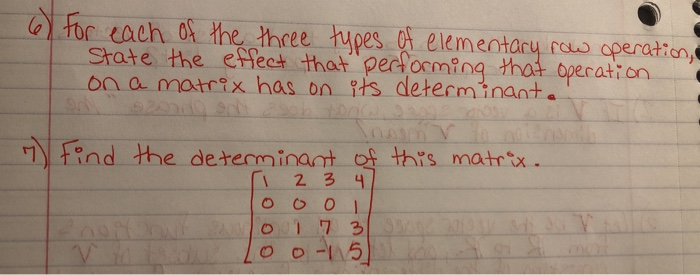 6) For each of the three types of elementary row operation,
State the effect that performing that operation
on a matrix has on its determinant.
7) Find the determinant of this matrix.
1 2 3 4
0 0 0 1
0 1 7 3
0 0 -1 5